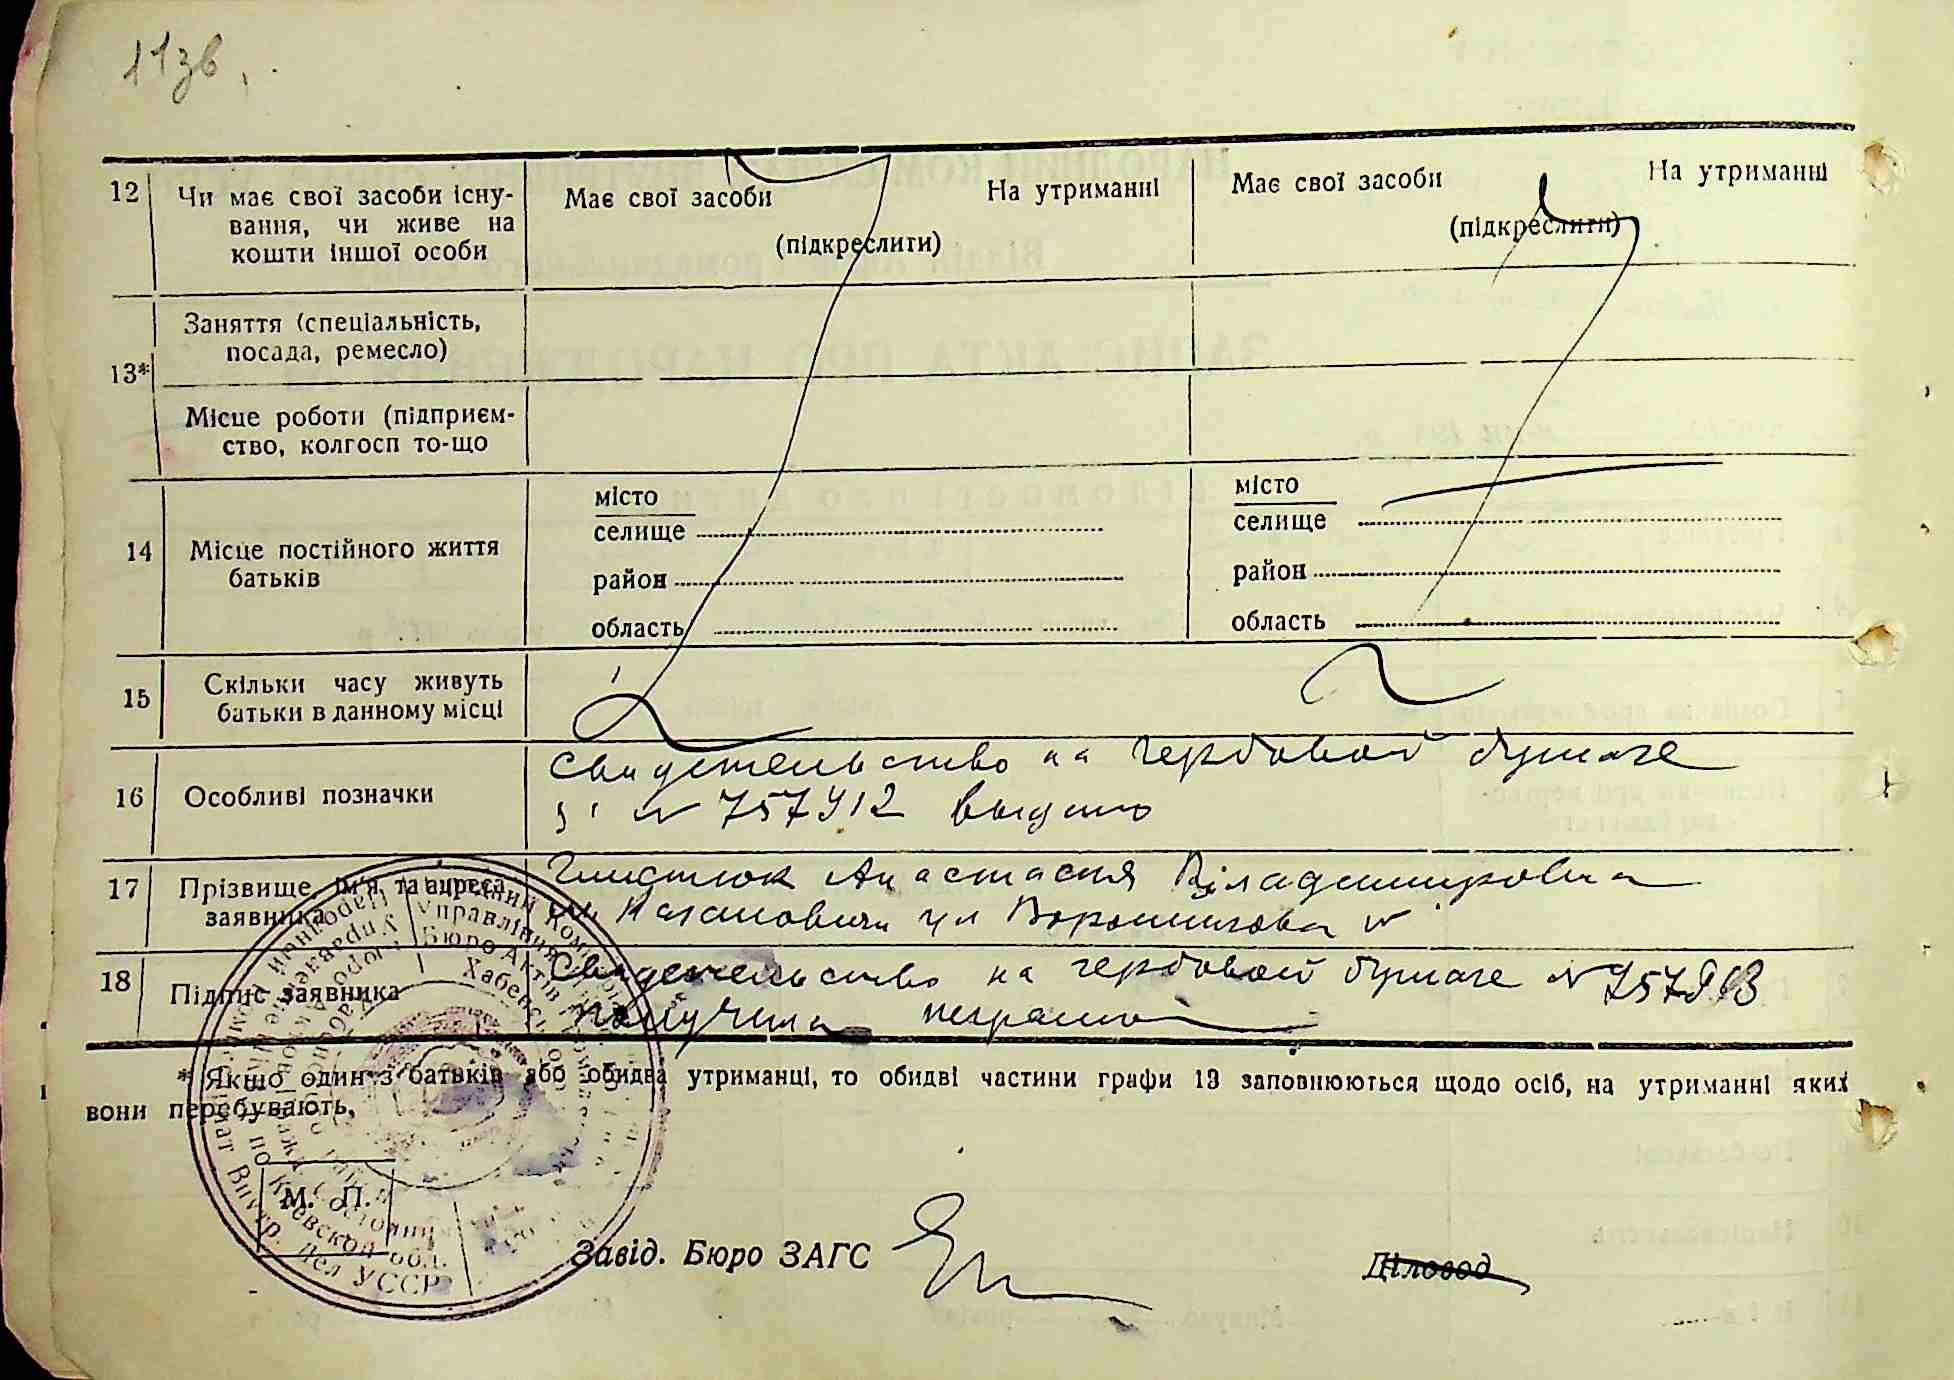 11зв.
12 Чи має свої засоби існу-
вання, чи живе на
кошти іншої особи
Має свої засоби На утриманні
(підкреслити)
Має свої засоби На утриманні
(підкреслити)
13*
Заняття (спеціальність,
посада, ремесло)
Місце роботи (підприєм-
ство, колгосп то-що
14 Місце постійного життя
батьків
місто
селище
район
область
місто
селище
район
область
15 Скільки часу живуть
батьки в данному місці
16 Особливі позначки
Свидетельство на гербовой бумаге
№ 757912 выдано
17 Прізвище, ім'я, та адреса
заявника
Анастасия Владимировна
ул Ворошилова №
18 Підпис заявника
Свидетельство на гербовой бумаге № 757913
получила неграмот
* Якщо один з батьків або обидва утриманці, то обидві частини графи 13 заповнюються щодо осіб, на утриманні яких
вони перебувають,
М. П.
Завід. Бюро ЗАГС
Діловод